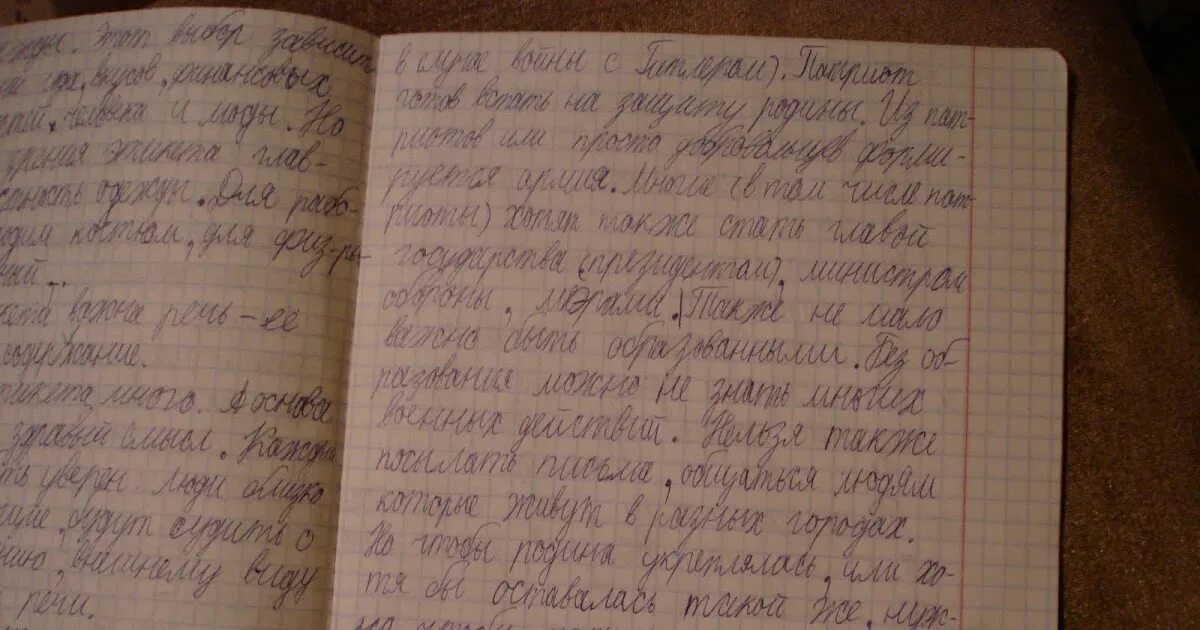 этот выбор зависит
вкусов, финансовых
человека и моды. Но
зрения этикета глав-
одежды. Для рабо-
костюм, для физ-ры
важна речь – её
содержание.
много. А основа
здравый смысл. Кажд
уверен. люди близко
будут судить о
внешнему виду
речи.
в случа войны с Гитлером). Патриот
готов встать на защиту родины. Из пат-
риотов или просто добровольцев форми-
руется армия. Многие (в том числе пат-
риоты) хотят также стать главой
государства (президентом), министром
обороны, мэрами. Также не мало
важно быть образованными. Без об-
разования можно не знать многих
военных действий. Нельзя также
посылать письма, общаться людям
которые живут в разных городах.
Но чтобы родина укреплялась, или хо-
тя бы оставалась такой же, нуж-
но чтобы